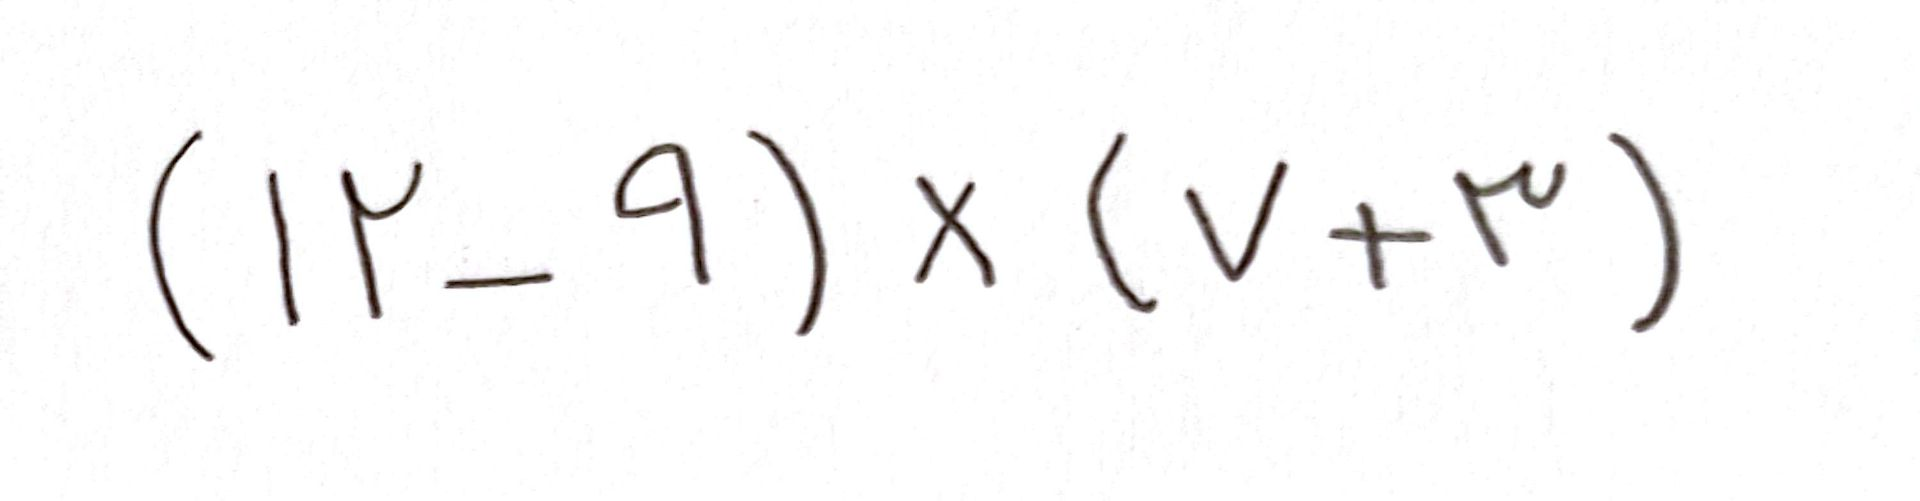 (۱۲_۹)×(۷+۳)